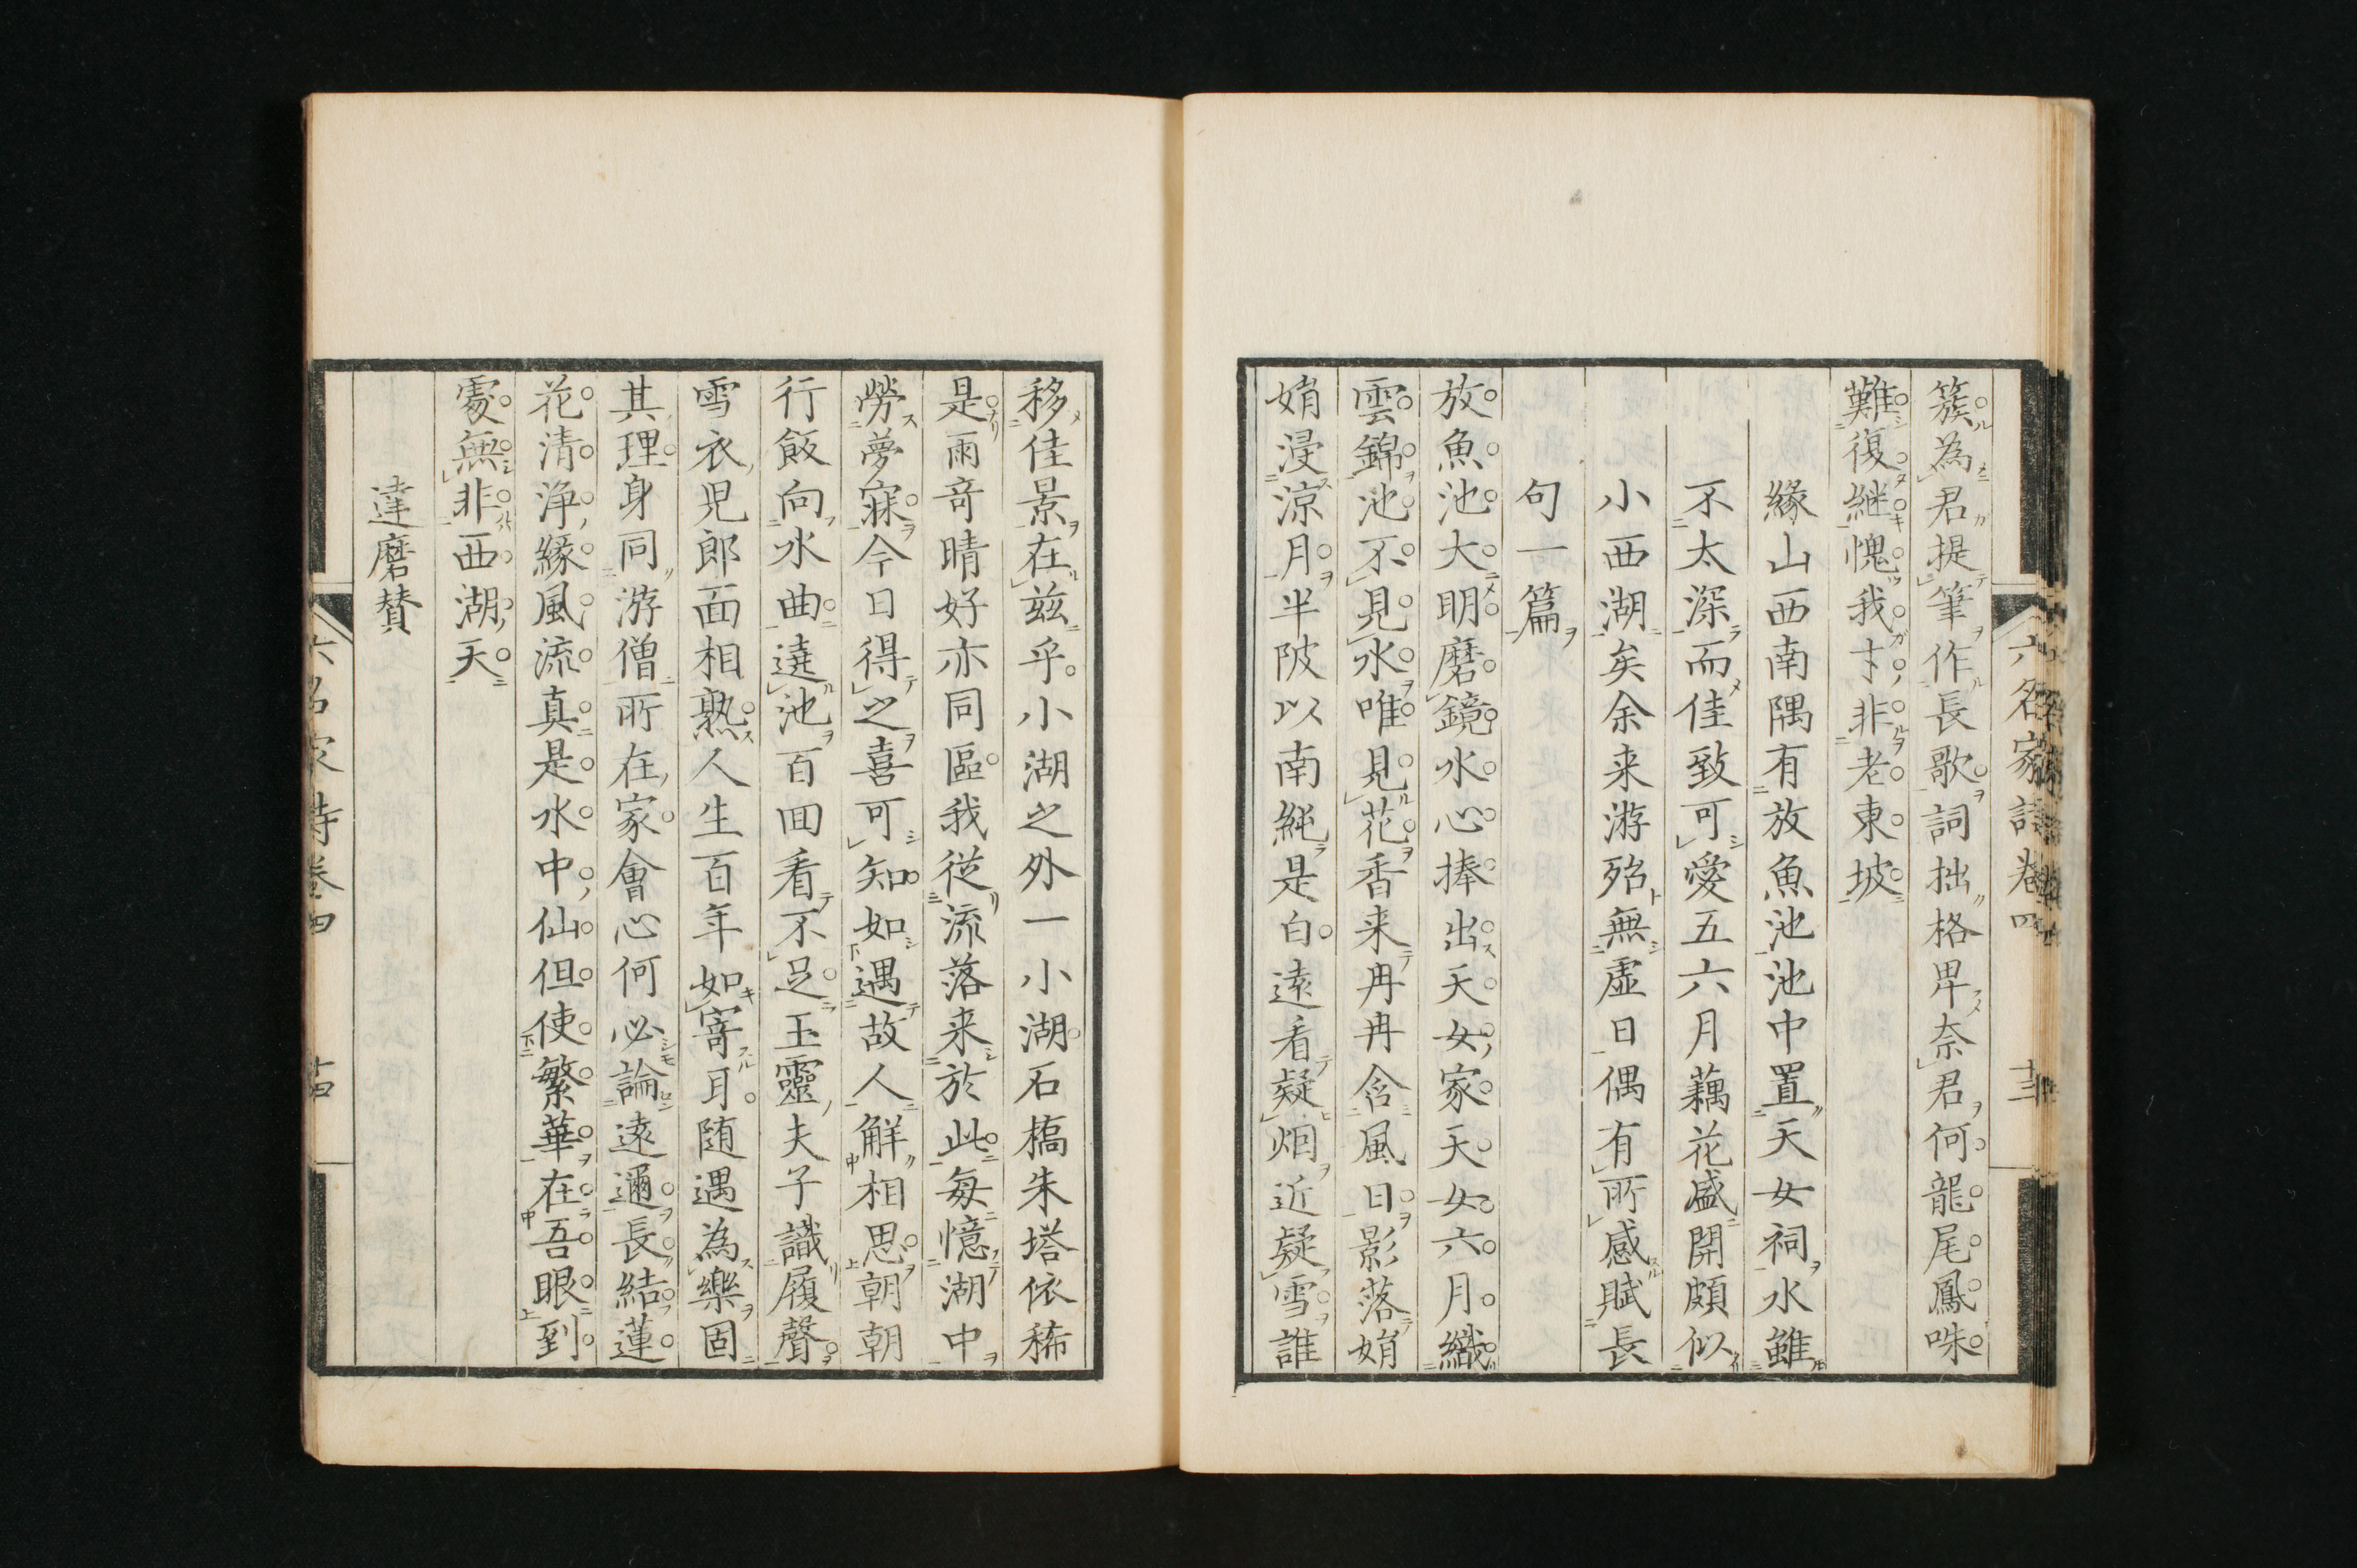 六名家詩卷四 十三
簇為君提筆作長歌詞拙格卑奈君何龍尾鳳咮
難復継愧我才非老東坡
緣山西南隅有放魚池池中置天女祠水雖
不太深而佳致可愛五六月藕花盛開頗似
小西湖矣余来游殆無虚日偶有所感賦長
句一篇
放魚池大明磨鏡水心捧出天女家天女六月織
雲錦池不見水唯見花香来冉冉含風日影落娟
娟浸涼月半陂以南純是白遠看疑烟近疑雪誰
移佳景在茲乎小湖之外一小湖石橋朱塔依稀
是雨竒晴好亦同區我従流落来於此每憶湖中
勞夢寐今日得之喜可知如遇故人觧相思朝朝
行飯向水曲遶池百回看不足玉靈夫子識履聲
雪衣児郎面相熟人生百年如寄耳随遇為樂固
其理身同游僧所在家會心何必論遠邇長結蓮
花清浄緣風流真是水中仙但使繁華在吾眼到
處無非西湖天
達磨賛
六名家詩卷四 十四